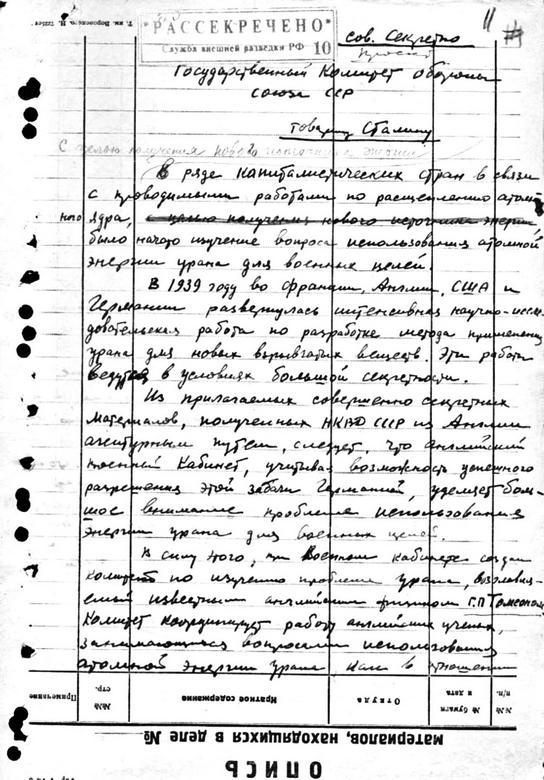 "РАССЕКРЕЧЕНО"
Служба внешней разведки РФ 10
11
сов. Секретно
Государственный Комитет Обороны
Союза ССР
товарищу Сталину
с целью получения нового источника энергии
В ряде капиталистических стран в связи
с проводимыми работами по расщеплению атом
ного ядра, с целью получения нового источника энергии,
было начато изучение вопроса использования атомной
энергии урана для военных целей.
В 1939 году во Франции, Англии, США и
Германии развернулась интенсивная научно-иссле
довательская работа по разработке метода применения
урана для новых взрывчатых веществ. Эти работы
ведутся в условиях большой секретности.
Из прилагаемых совершенно секретных
материалов, полученных НКВД СССР из Англии
агентурным путем, следует, что английский
военный Кабинет, учитывая возможность успешного
разрешения этой задачи Германией, уделяет боль-
шое внимание проблеме использования
энергии урана для военных целей.
В силу этого, при Военном кабинете создан
комитет по изучению проблемы урана, возглавля-
емый известным английским физиком Г.П Томсоном.
Комитет координирует работу английских ученых,
занимающихся вопросами использования
атомной энергии урана как в отношении
Примечание
№№ стр.
Краткое содержание
Откуда
№ бумаги и дата
№№ п/п.
материалов, находящихся в деле №
ОПИСЬ